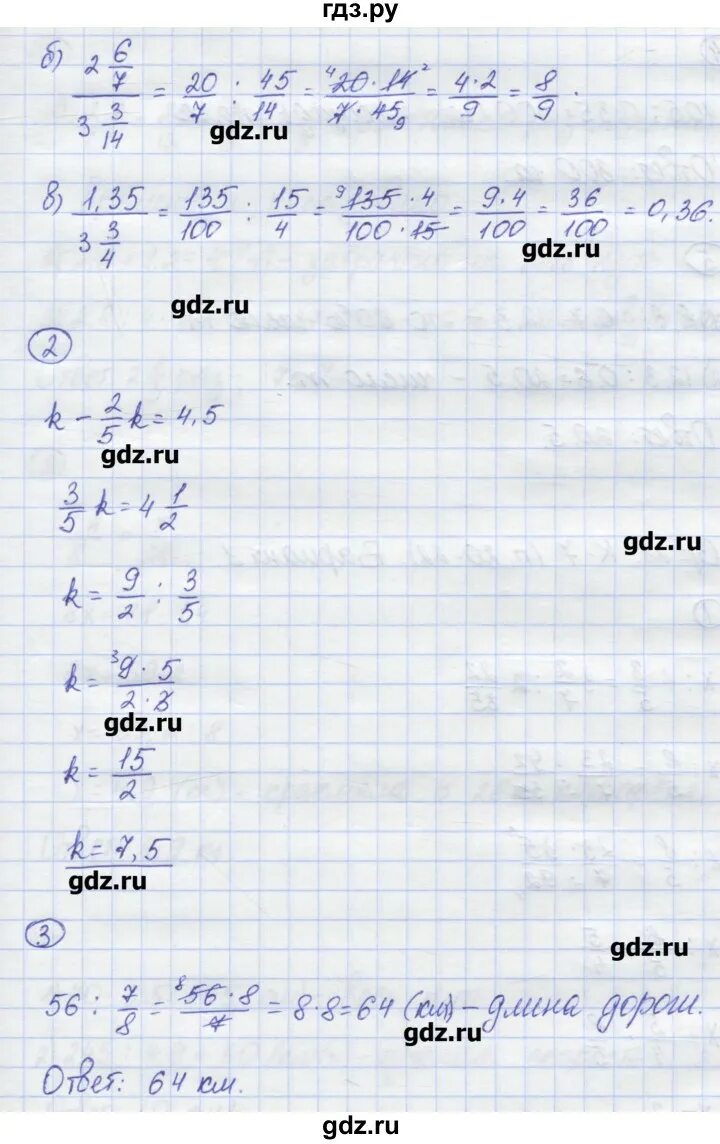 гдз.ру
б) 2 6/7 / 3 3/14 = 20/7 : 45/14 = 20·14/7·45 = 4·2/9 = 8/9.
gdz.ru
в) 1,35 / 3 3/4 = 135/100 : 15/4 = 135·4/100·15 = 9·4/100 = 36/100 = 0,36.
gdz.ru
gdz.ru
2
k - 2/5 k = 4,5
gdz.ru
3/5 k = 4 1/2
gdz.ru
k = 9/2 : 3/5
k = 9·5/2·3
gdz.ru
k = 15/2
k = 7,5
gdz.ru
3
gdz.ru
56 : 7/8 = 56·8/7 = 8·8 = 64 (км) - длина дороги.
gdz.ru
Ответ: 64 км.
gdz.ru